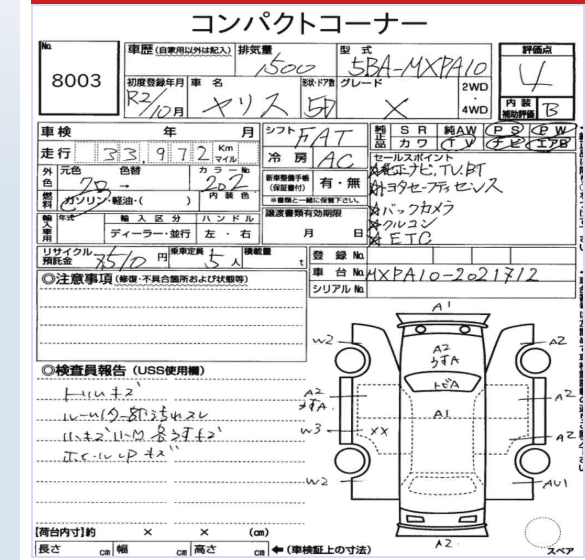 コンパクトコーナー
No. 8003
車歴 (自家用以外は記入) 排気量 1500 型式 5BA-MXPA10
評価点 4
初度登録年月 R2/10月 車名 ヤリス 形状・ドア数 5D グレード X 2WD 4WD
内装補助評価 B
車検 年 月 シフト FAT 純正品 SR 純AW PS PW
カワ TV ナビ エアB
走行 33,972 Km マイル 冷房 AC
セールスポイント
外色 元色 色替 カラーNo. 202 クロ →
内装色
新車整備手帳 (保証書付) 有・無
※書類と一緒に保管下さい。
燃料 ガソリン・軽油・( )
☆純正ナビ,TV,BT
☆トヨタセーフティセンス
☆バックカメラ
☆クルコン
☆ETC
輸入車用 年式 輸入区分 ハンドル
ディーラー・並行 左・右
譲渡書類有効期限
月 日
リサイクル預託金 7510 円 乗車定員 5人 積載量 t
登録No.
車台No. MXPA10-2021712
シリアルNo.
◎注意事項 (修復・不具合箇所および状態等)
◎検査員報告 (USS使用欄)
A1
W2
A2
A2
うすA
トビA
A2
うすA
A1
A2
W3
XX
A2
W2
AU1
A2
スペア
【荷台内寸】約 × × (cm)
長さ cm 幅 cm 高さ cm ←(車検証上の寸法)